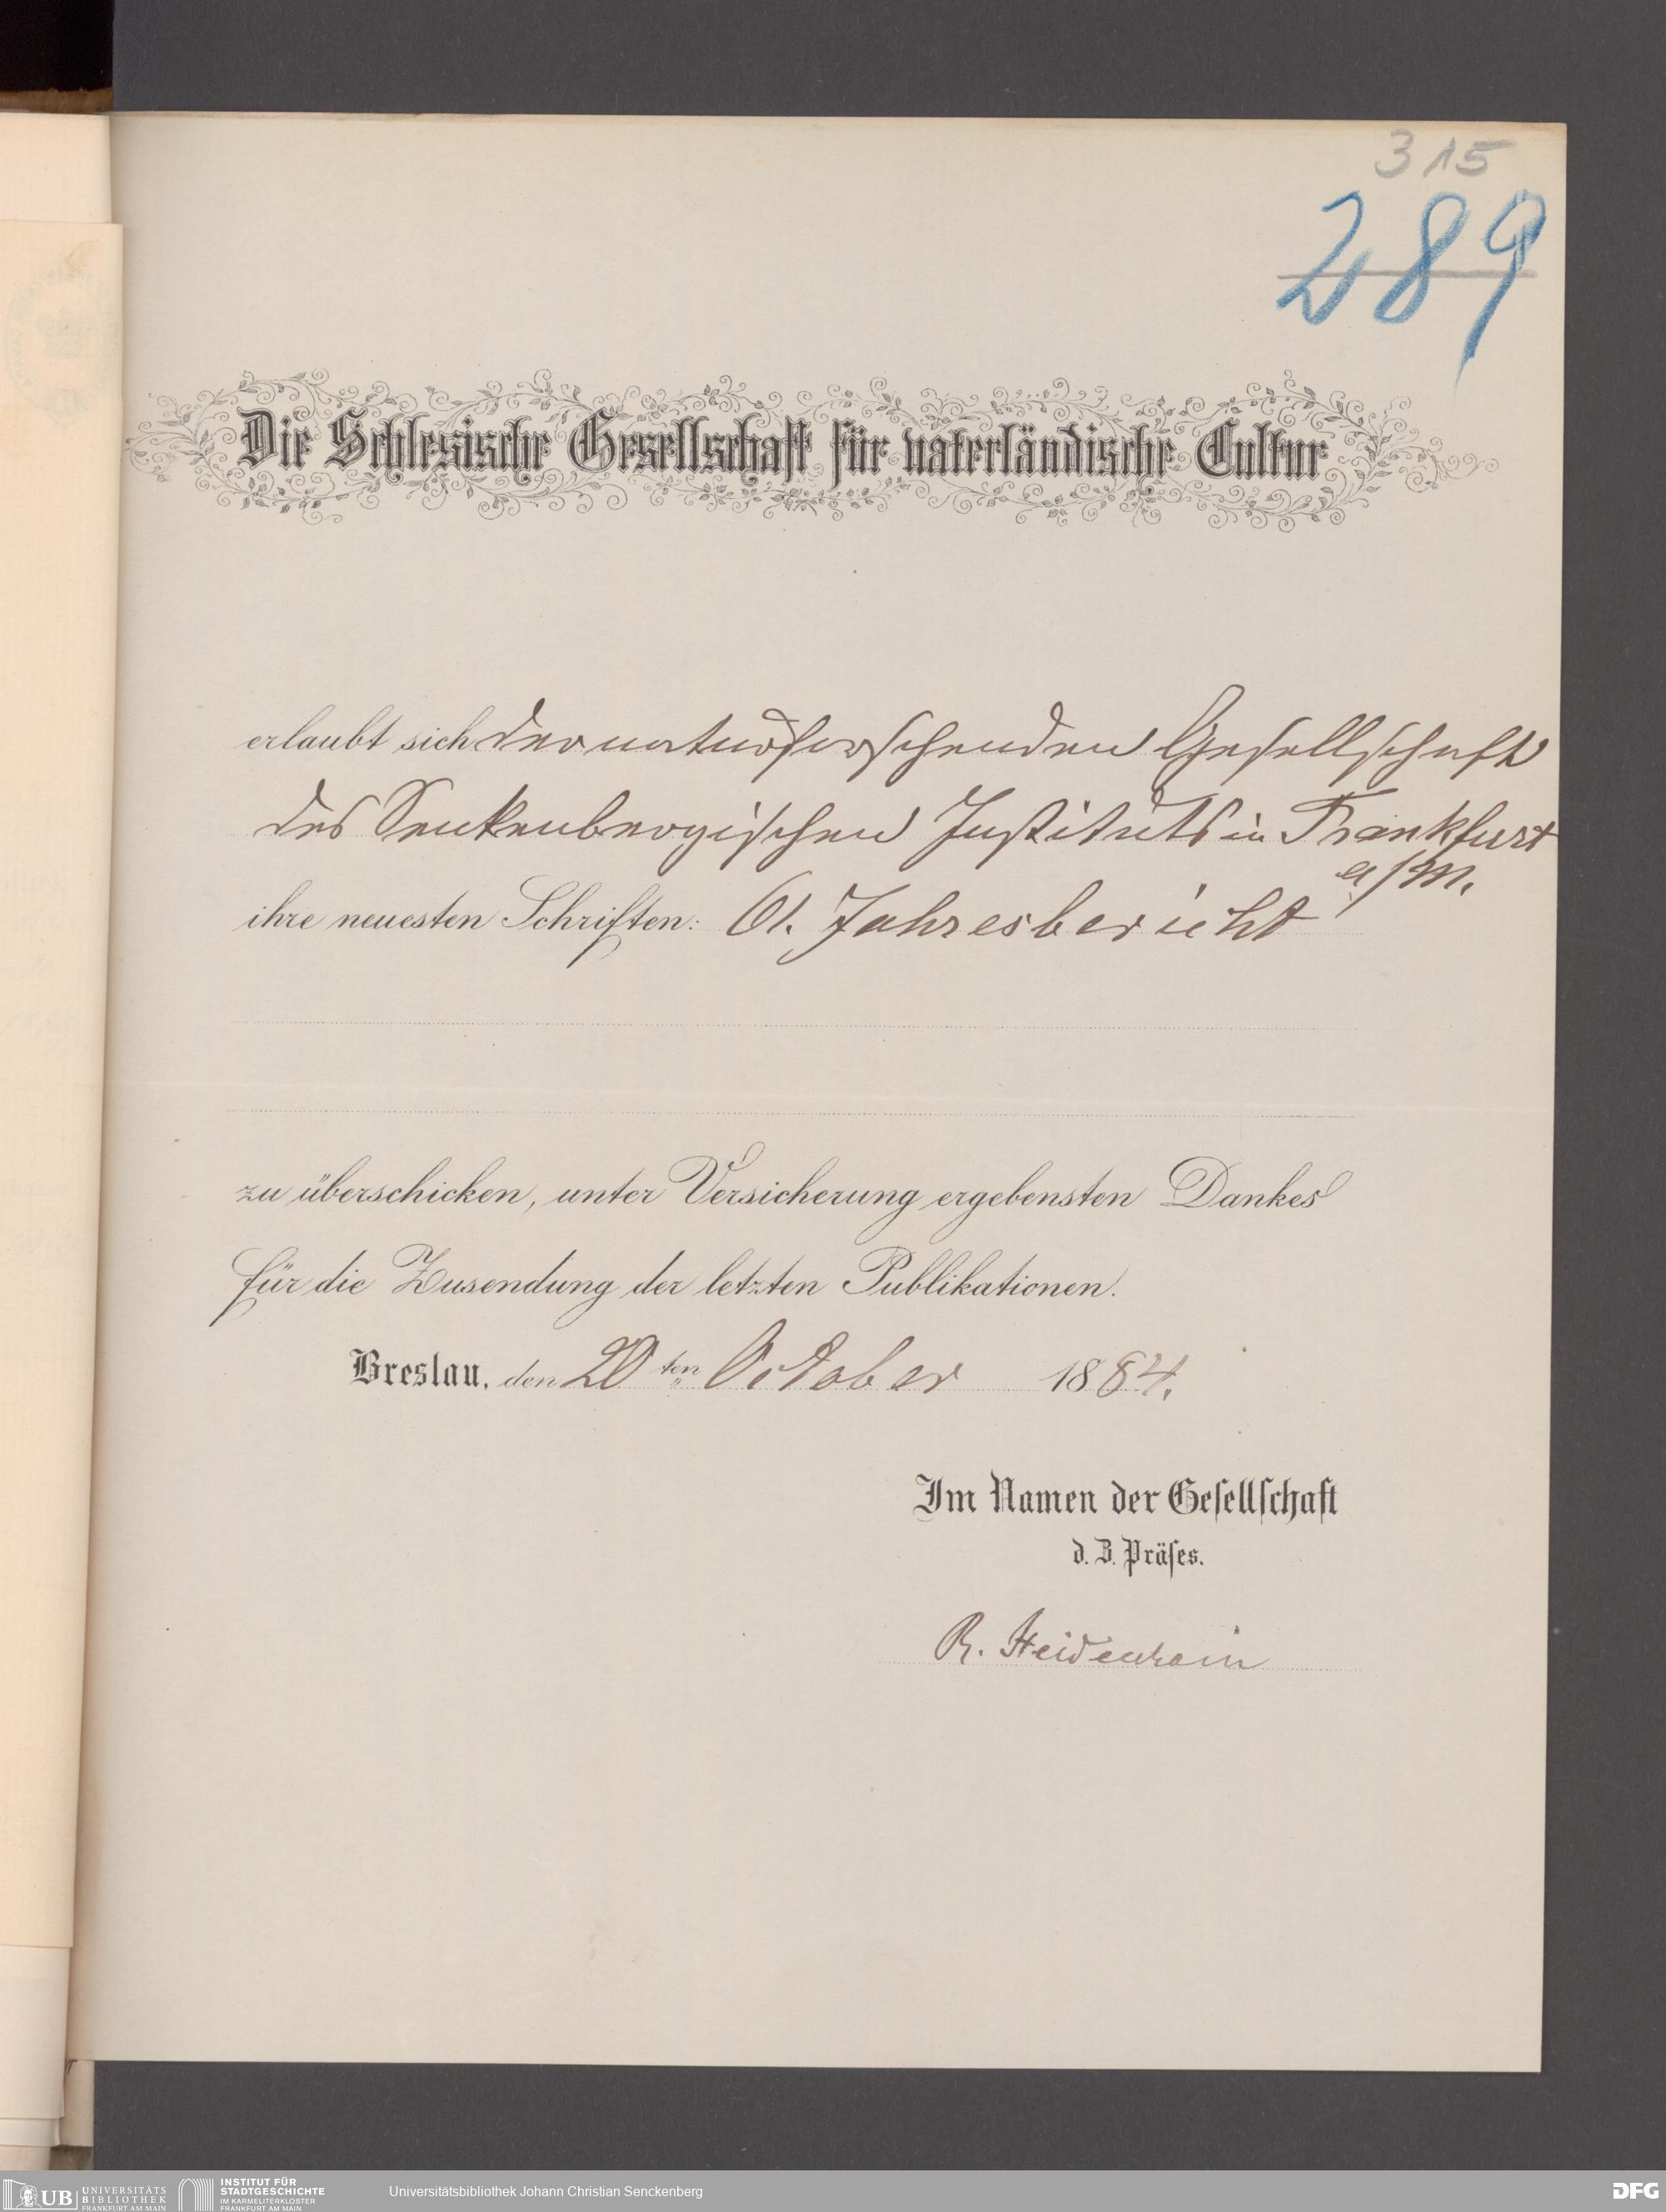 315
289
Die Schlesische Gesellschaft für vaterländische Cultur
erlaubt sich der naturforschenden Gesellschaft
des Senkenbergischen Instituts in Frankfurt
a/M.
ihre neuesten Schriften: 61. Jahresbericht
zu überschicken, unter Versicherung ergebensten Dankes
für die Zusendung der letzten Publikationen.
Breslau, den 20ten October 1884.
Im Namen der Gesellschaft
d. Z. Präses.
R. Heidenhain
UB UNIVERSITÄTS BIBLIOTHEK FRANKFURT AM MAIN
INSTITUT FÜR STADTGESCHICHTE IM KARMELITERKLOSTER FRANKFURT AM MAIN
Universitätsbibliothek Johann Christian Senckenberg
DFG